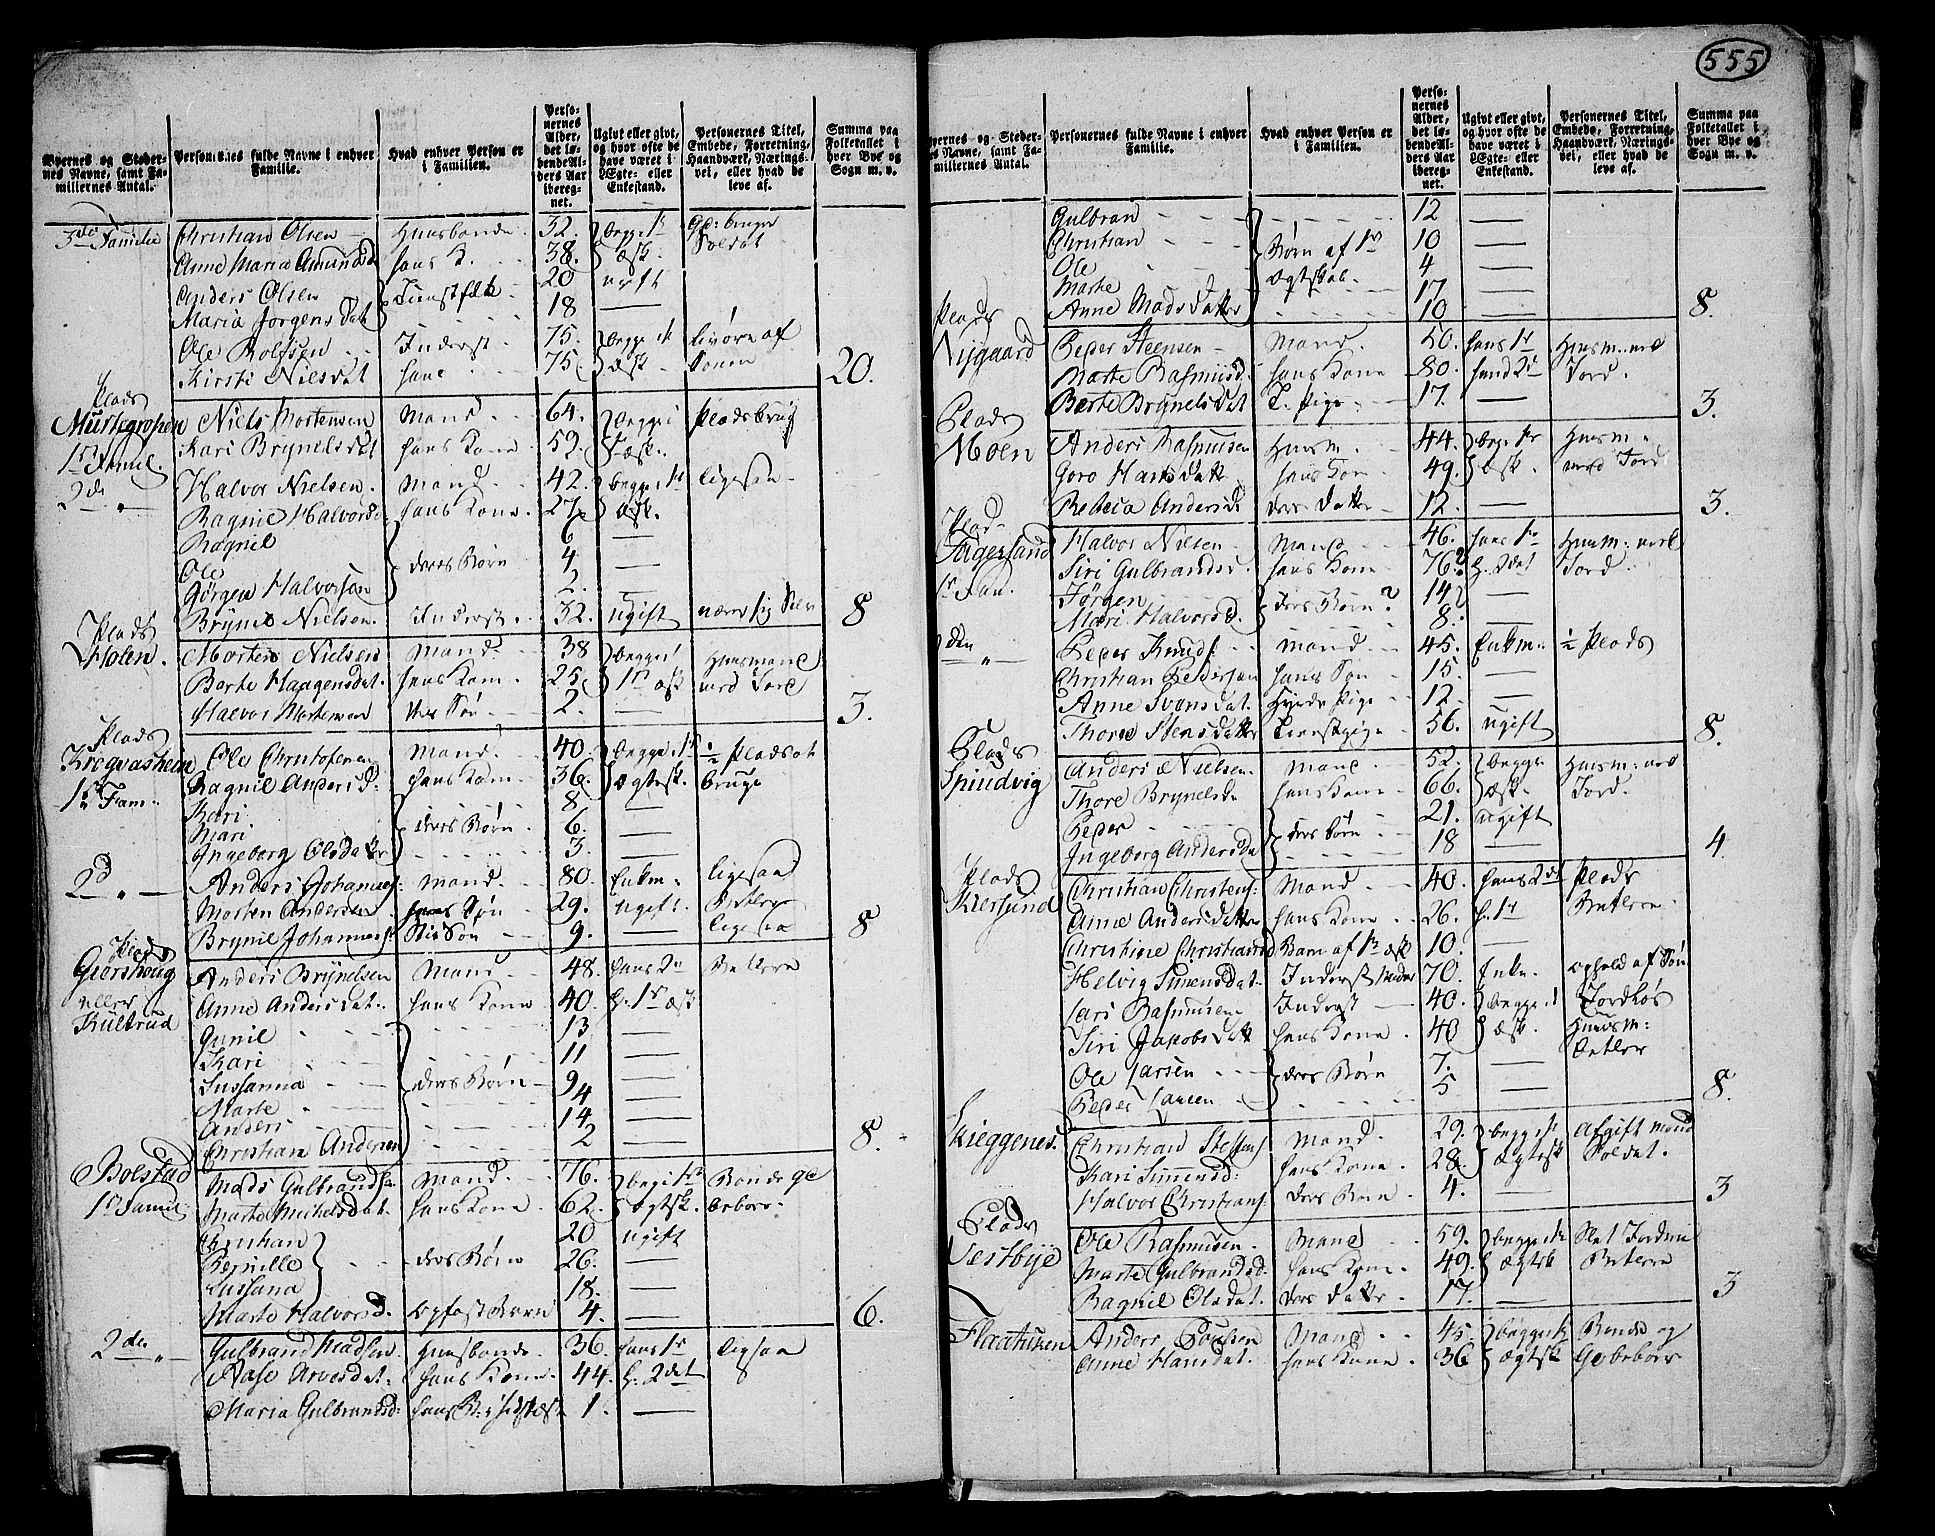 555
Byernes og Steder-
nes Navne, samt Fa-
miliernes Antal.
Personernes fulde Navne i enhver
Familie.
Hvad enhver Person er
i Familien.
Perso-
nernes
Alder,
det lø-
bende Al-
ders Aar
ibereg-
net.
Ugivt eller givt,
og hvor ofte de
have været i
Ægte- eller
Enkestand.
Personernes Titel,
Embede, Forretning,
Haandværk, Nærings-
vei, eller hvad de
leve af.
Summa paa
Folketallet i
hver Bye og
Sogn m. v.
3de Familie Christian Olsen Huusbonde 32. begge 1te Gd: bruger
Anne Maria Amunds hans K. 38. Ægsk. Soldat
Anders Olsen Tienstfolk 20 ugift
Maria Jorgens dat 18 —
Ole Rolfsen Inderst 75. begge 1t
Kirsti Nielsdat hans 75. Ægsk. 20.
Plads
Niels Mortensen Mand 64. begge i Pladsbrug
Kari Brynelsdat hans Kone 59. Ægsk.
1st Famil.
2de „ — Halvor Nielsen Mand 42. begge 1st ligesaa
Ragnil Halvorsd hans Kone 27. Ægsk.
Ragnil 6 —
Ole deres Børn 4. —
Jørgen Halvorsøn 2. —
Brynil Nielsen Inderst 32. ugift 8
Plads
Holen Morten Nielsen Mand 38 begge 1 Huusmand
Berte Haagensdat. hans Kone 25. 1st Ægsk med Jord
Halvor Mortensen deres Søn 2. — 3.
Plads
Ole Christofersen Mand 40. begge 1st ½ Plads at
Ragnil Anders D: hans Kone 36. Ægtesk. bruge
1st Fam: Kari 8 —
Mari deres Børn 6. —
Ingeborg Olsdatter 3. —
2d „ — Anders Johannes: Mand 80. Enkm. ligesaa
Morten Andersen hans Søn 29. ugift
Brynil Johannes: Stif Søn 9. — ligesaa 8
Plads
eller
Kultrud
Anders Brynelsen Mand 48. hans 2n
Anne Anders dat. hans Kone 40. h. 1st Ægsk
Gunil 13 —
Kari 11 —
Sussanna deres Børn 9 —
Marte 4 —
Anders 14 —
Christian Andersen 2 — 8.
Bolstad
1st Famil: Mads Gulbrandsen Mand 76. begge 1st Bonde og
Marte Michelsdat. hans Kone 62. Ægtsk.
Christian 20 ugift
Pernille deres Børn 26. —
Sussana 18. —
Marte Halvorsd. Opfostret 4. — 6.
2de „ — Gulbrand Madsen Huusbonde 36. hans 1st ligesaa
Aase Arvesdat. hans Kone 44. h. 2det
Maria Gulbrandsd: 1. —
Byernes og Steder-
nes Navne, samt Fa-
miliernes Antal.
Personernes fulde Navne i enhver
Familie.
Hvad enhver Person er
i Familien.
Perso-
nernes
Alder,
det lø-
bende Al-
ders Aar
ibereg-
net.
Ugivt eller givt,
og hvor ofte de
have været i
Ægte- eller
Enkestand.
Personernes Titel,
Embede, Forretning,
Haandværk, Nærings-
vei, eller hvad de
leve af.
Summa paa
Folketallet i
hver Bye og
Sogn m. v.
Gulbran 12 —
Christian Børn af 1st 10 —
Ole Ægtskab 4 —
Marte 17 —
Anne Mads datter 10 — 8.
Plads
Nygaard Peder Steensen Mand 50. hans 1st Huusm: med
Marte Rasmusd. hans Kone 80. hend 2de Jord.
Berte Brynelsdat T. Pige 17. — 3.
Plads
Moen Anders Rasmusen Huusm. 44. begge 1st Huusm:
Goro Hansdatt hans Kon 49. Ægsk. med Jord
Rebeca Andersd. deres Datter 12. — 3.
Plads
Fagersand Halvor Nielsen Mand 46. hans 1st Huusm: med
Siri Gulbrandsd. hans Kone 76? h. 2det Jord
1st Fam. Jørgen deres Børn? 14 —
Mari Halvorsd. 8. —
2den „ — Peder Knuds: Mand 45. Enkm: ½ Plads
Christian Pedersøn hans Søn 15. —
Anne Svensdat. Hyrde Pige 12. —
Thore Stensdatter Tienstpige 56. ugift 8.
Plads
Spindvig Anders Nielsen Mand 52. begge Huusm: med
Thore Brynelsda hans Kone 66. Ægsk. Jord.
Peder deres Børn 21. ugift
Ingeborg Andersda 18 — 4
Plads
Kiersund Christian Christens: Mand 40. hans 2det Plads
Anne Anders Datter hans Kone 26. h. 1st
Christine Christiansd Barn af 1st Ægsk 10. —
Helvig Simensdat. Inderst Moder 70. Enke. ophold af Søn
Lars Rasmusen Inderst 40. begge 1 Jordløs
Siri Jakobs Datt hans Kone 40 Ægsk. Huusm:
Ole Larsen deres Børn 7. —
Peder Larsen 5 — 8.
Skieggenes. Christian Steffens Mand. 29. begge 1st Afgift Mand
Kari Simensd: hans Kone 28. Ægtesk Soldat.
Halvor Christians deres Barn 4. — 3
Plads
Vestbye Ole Rasmusen. Mand 59. begge 1ste
Marte Gulbrandsd. hans Kone 49. Ægtsk
Ragnil Olsdat. deres Datter 17. — 3
Anders Poulsen Mand 45 begge 1st Bonde og
Anne Hansdat. hans Kone 36 Ægtsk